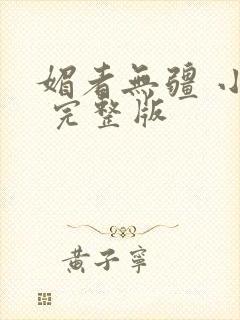 媚者無疆 小
完整版
黄子寧